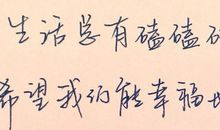 生活总有磕磕
希望我们能幸福